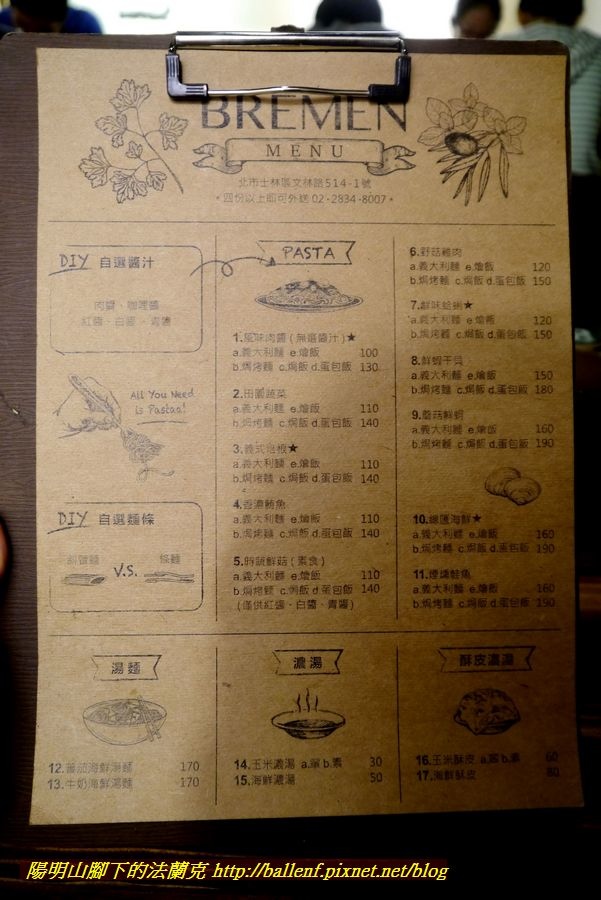 BREMEN
MENU
北市士林區文林路514-1號
•四份以上即可外送 02-2834-8007•
DIY 自選醬汁
肉醬、咖哩醬
紅醬、白醬、青醬
All You Need
is Pastaa!
DIY 自選麵條
V.S. 條麵
PASTA
1.風味肉醬(無選醬汁)★
a.義大利麵 e.燴飯 100
b.焗烤麵 c.焗飯 d.蛋包飯 130
2.田園蔬菜
a.義大利麵 e.燴飯 110
b.焗烤麵 c.焗飯 d.蛋包飯 140
3.義式培根★
a.義大利麵 e.燴飯 110
b.焗烤麵 c.焗飯 d.蛋包飯 140
4.香濃鮪魚
a.義大利麵 e.燴飯 110
b.焗烤麵 c.焗飯 d.蛋包飯 140
5.時蔬鮮菇(素食)
a.義大利麵 e.燴飯 110
b.焗烤麵 c.焗飯 d.蛋包飯 140
(僅供紅醬、白醬、青醬)
6.野菇雞肉
a.義大利麵 e.燴飯 120
b.焗烤麵 c.焗飯 d.蛋包飯 150
7.鮮味蛤蜊★
a.義大利麵 e.燴飯 120
b.焗烤麵 c.焗飯 d.蛋包飯 150
8.鮮蝦干貝
a.義大利麵 e.燴飯 150
b.焗烤麵 c.焗飯 d.蛋包飯 180
9.蘑菇鮮蚵
a.義大利麵 e.燴飯 160
b.焗烤麵 c.焗飯 d.蛋包飯 190
10.總匯海鮮★
a.義大利麵 e.燴飯 160
b.焗烤麵 c.焗飯 d.蛋包飯 190
11.煙燻鮭魚
a.義大利麵 e.燴飯 160
b.焗烤麵 c.焗飯 d.蛋包飯 190
湯麵
12.蕃茄海鮮湯麵 170
13.牛奶海鮮湯麵 170
濃湯
14.玉米濃湯 a.葷 b.素 30
15.海鮮濃湯 50
酥皮濃湯
16.玉米酥皮 a.葷 b.素 60
17.海鮮酥皮 80
陽明山腳下的法蘭克 http://ballenf.pixnet.net/blog